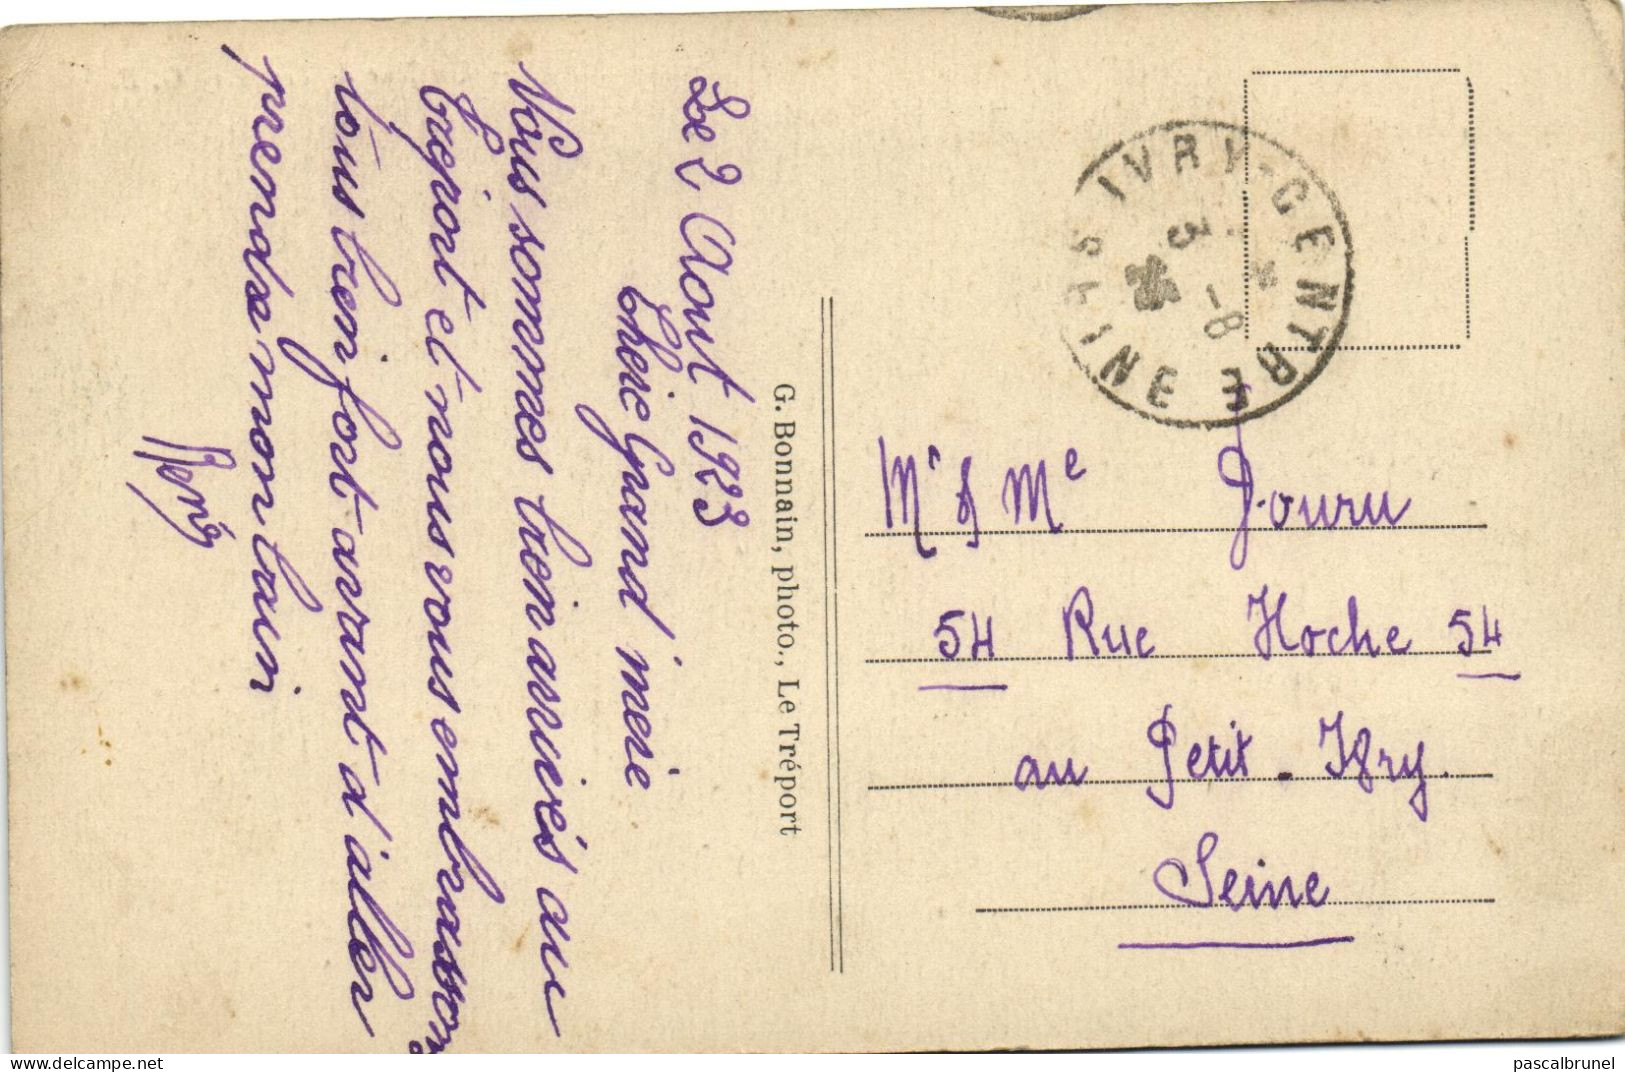 Le 2 Aout 1923
Chère Grand'mère
Nous sommes bien arrivés au
tréport et nous vous embrassons
tous bien fort avant d'aller
prendre mon bain
René
G. Bonnain, photo., Le Tréport
IVRY-CENTRE
SEINE
3 -8
Mr & Me Jouru
54 Rue Hoche 54
au Petit-Ivry.
Seine
delcampe.net
pascalbrunel